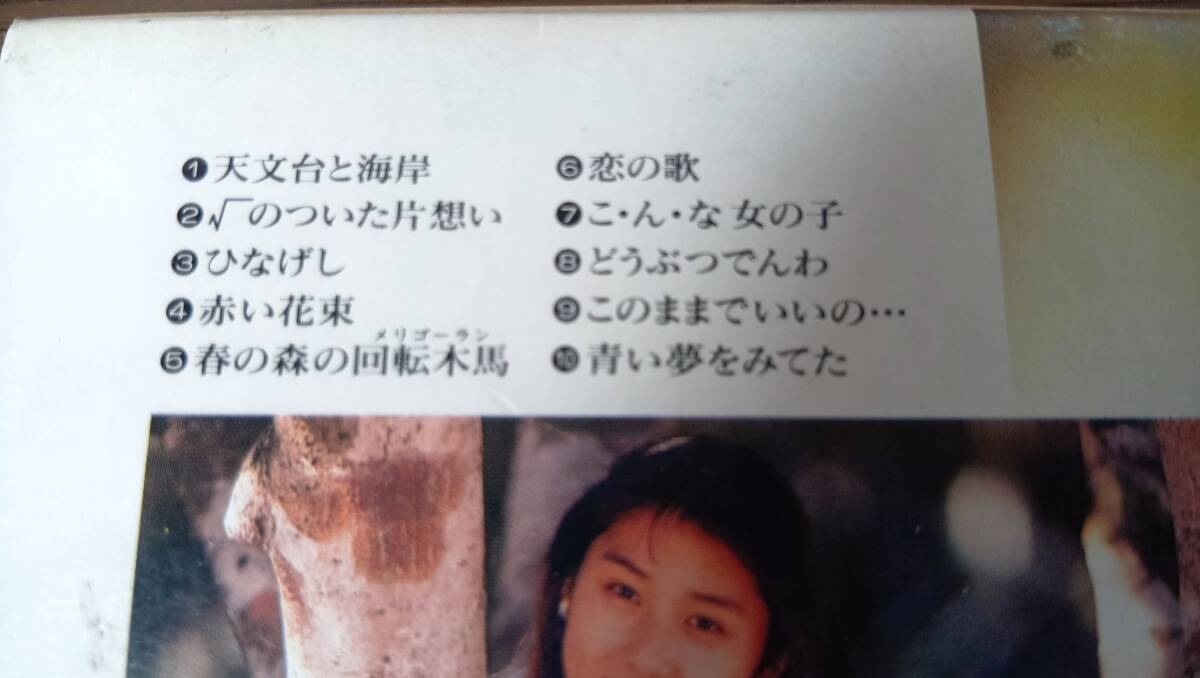 ❶天文台と海岸
❷√のついた片想い
❸ひなげし
❹赤い花束
メリゴーラン
❺春の森の回転木馬
❻恋の歌
❼こ・ん・な女の子
❽どうぶつでんわ
❾このままでいいの…
❿青い夢をみてた